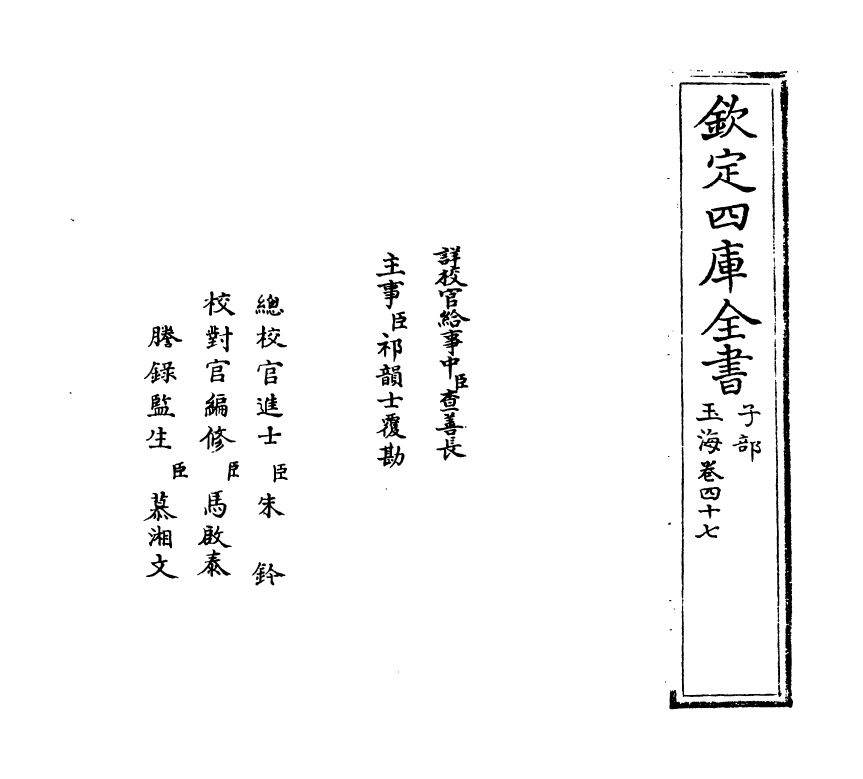 欽定四庫全書
子部
玉海卷四十七
詳校官給事中臣查善長
主事臣祁韻士覆勘
總校官進士臣朱鈐
校對官編修臣馬啟泰
謄錄監生臣慕湘文